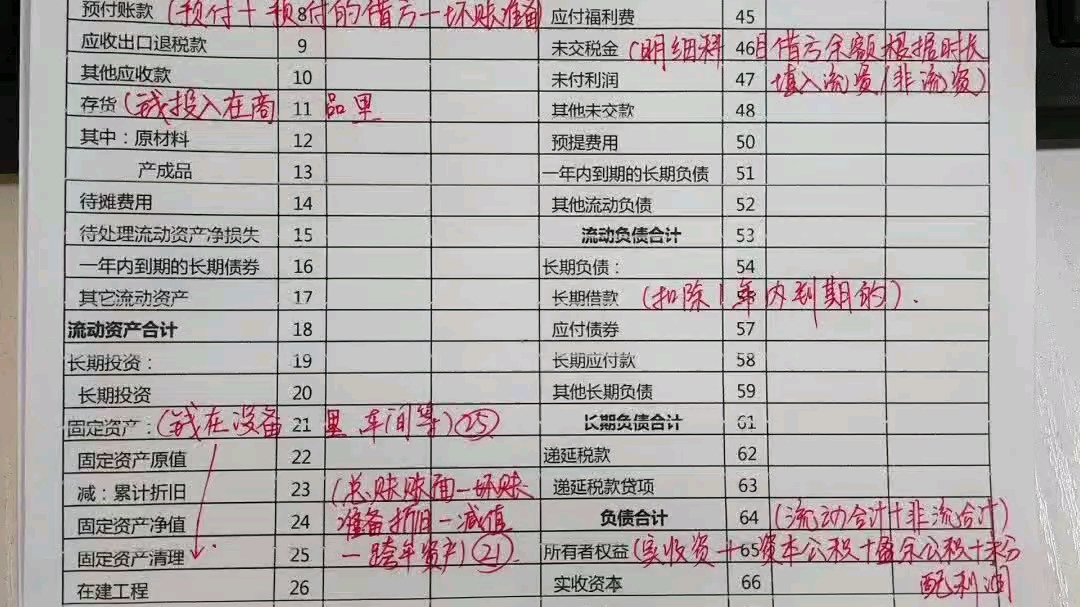 预付账款 (预付+预付的借方一坏账准备 8 应付福利费 45
应收出口退税款 9 未交税金 (明细科 46 目借方余额根据时长
其他应收款 10 未付利润 47 填入流资/非流资)
存货 (钱投入在商 11 品里 其他未交款 48
其中：原材料 12 预提费用 50
产成品 13 一年内到期的长期负债 51
待摊费用 14 其他流动负债 52
待处理流动资产净损失 15 流动负债合计 53
一年内到期的长期债券 16 长期负债： 54
其它流动资产 17 长期借款 (扣除1年内到期的).
流动资产合计 18 应付债券 57
长期投资： 19 长期应付款 58
长期投资 20 其他长期负债 59
固定资产： (钱在设备 21 里 车间等) 25 长期负债合计 61
固定资产原值 22 递延税款 62
减：累计折旧 23 (总账账面一坏账 递延税款贷项 63
固定资产净值 24 准备折旧一减值 负债合计 64 (流动合计+非流合计)
固定资产清理 25 一跨年资产) 21 所有者权益 (实收资 + 65 资本公积+盈余公积+未分
在建工程 26 实收资本 66 配利润